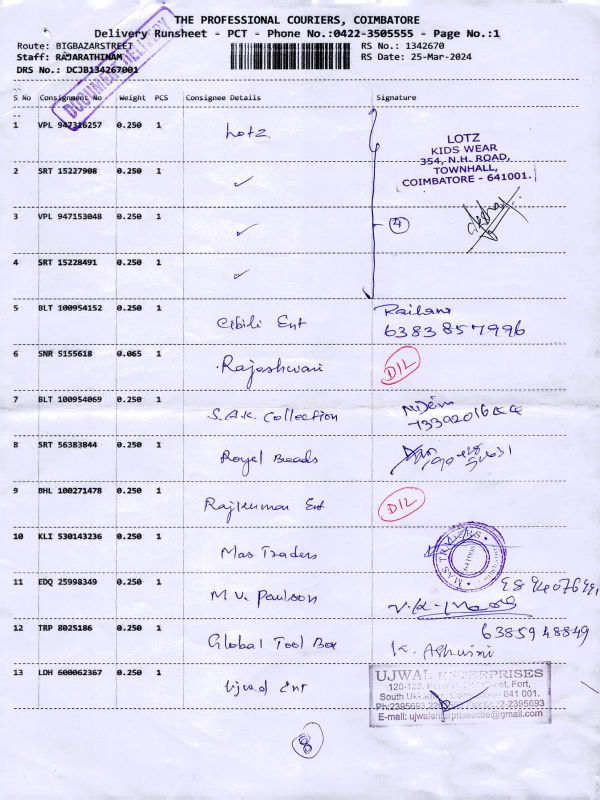 THE PROFESSIONAL COURIERS, COIMBATORE
Delivery Runsheet - PCT - Phone No.:0422-3505555 - Page No.:1
Route: BIGBAZARSTREET RS No.: 1342670
Staff: RAJARATHINAM RS Date: 25-Mar-2024
DRS No.: DCJB134267001
DOCUMENT DELIVERY
S No Consignment No Weight PCS Consignee Details Signature
1 VPL 947316257 0.250 1 Lotz
LOTZ
KIDS WEAR
354, N.H. ROAD,
TOWNHALL,
COIMBATORE - 641001.
2 SRT 15227908 0.250 1 ✓
3 VPL 947153048 0.250 1 ✓ 4
4 SRT 15228491 0.250 1 ✓
5 BLT 100954152 0.250 1 Cibili Ent
6383857996
6 SNR 5155618 0.065 1 Rajeshwari D/L
7 BLT 100954069 0.250 1 S.A.K. Collection
8 SRT 56383844 0.250 1 Royel Beads
9 BHL 100271478 0.250 1 Rajkumar Ent D/L
10 KLI 530143236 0.250 1 Mas Traders
MAS TRADERS
11 EDQ 25998349 0.250 1 M.V. Paulson
12 TRP 8025186 0.250 1 Global Tool Box 6385948849
K. Ashwini
13 LDH 600062367 0.250 1 Ujwal Ent
UJWAL ENTERPRISES
Fort,
South 641 001.
Ph:2395693, 2395693
8